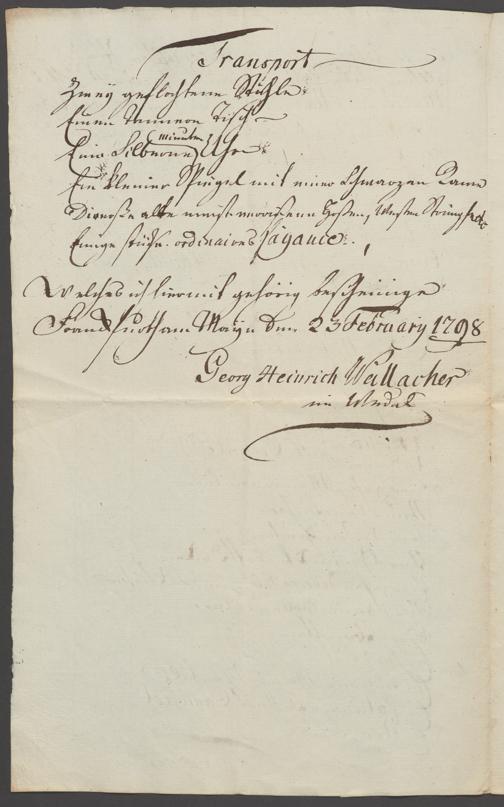 Transport
Zwey geflochtene Stühle
Einen tannern Tisch
Eine Silberne (minuten) Uhr
Ein kleiner Spiegel mit einer schwarzen Rame
Diverse alte meist zerrissene Hosen, Westen Strümpf etc
Einige stück ordinaires fajance
Welches ich hiermit gehörig bescheinige
Frankfurth am Mayn den 23 February 1798
Georg Heinrich Wallacher
im